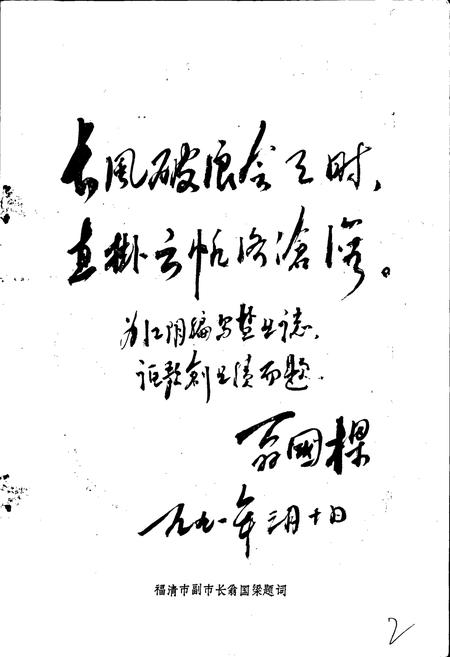 长风破浪会有时，
直掛云帆济沧海。
为江阴编写盐业志，
讴歌创业绩而题
翁國樑
一九九一年三月十日
福清市副市长翁国梁题词
2